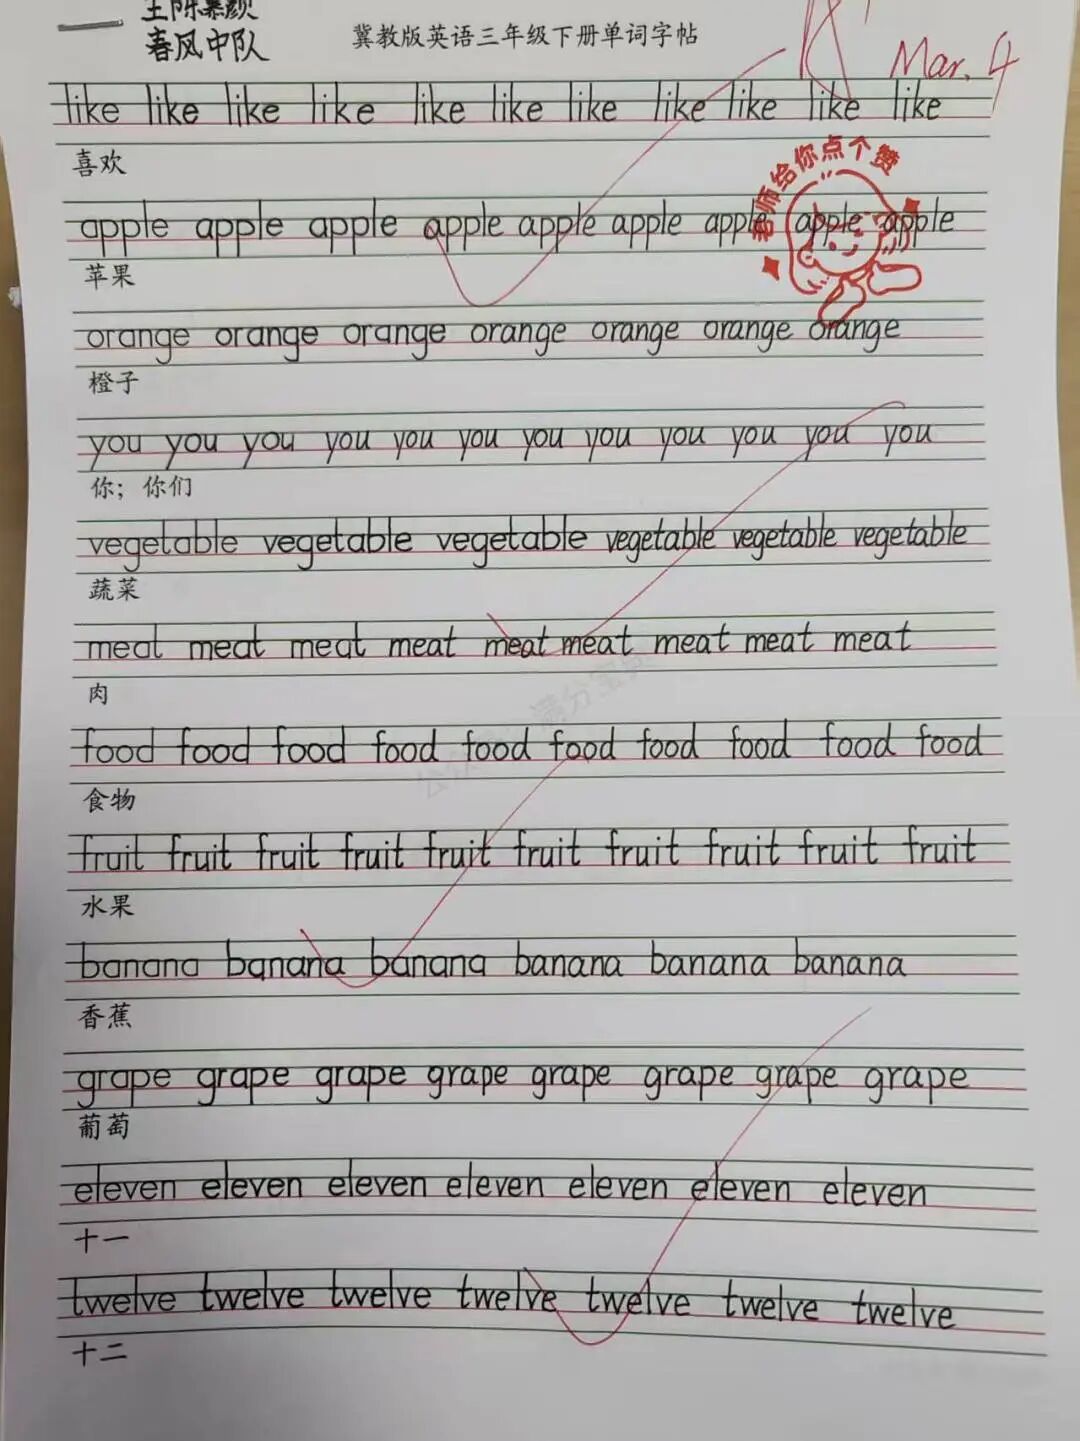 王陈慕颜
春风中队
冀教版英语三年级下册单词字帖
Mar. 4
like like like like like like like like like like like
喜欢
老师给你点个赞
apple apple apple apple apple apple apple apple apple
苹果
orange orange orange orange orange orange orange
橙子
you you you you you you you you you you you you
你；你们
vegetable vegetable vegetable vegetable vegetable vegetable
蔬菜
meat meat meat meat meat meat meat meat meat
肉
food food food food food food food food food food
食物
fruit fruit fruit fruit fruit fruit fruit fruit fruit fruit
水果
banana banana banana banana banana banana
香蕉
grape grape grape grape grape grape grape grape
葡萄
eleven eleven eleven eleven eleven eleven eleven
十一
twelve twelve twelve twelve twelve twelve twelve
十二